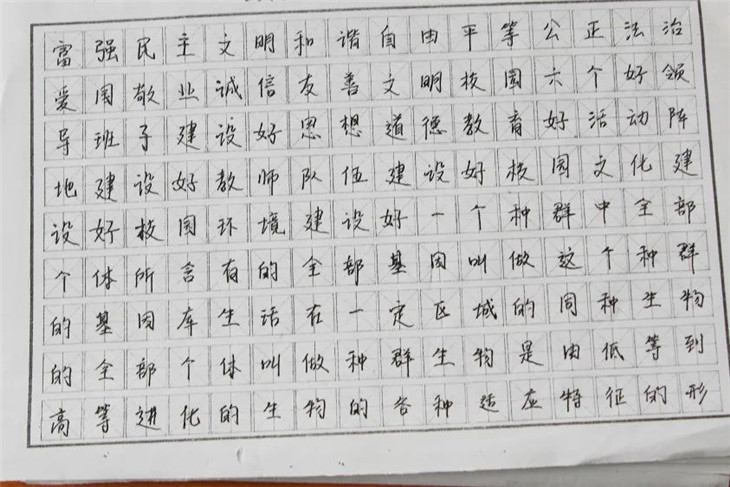 富强民主文明和谐自由平等公正法治
爱国敬业诚信友善文明校园六个好领
导班子建设好思想道德教育好活动阵
地建设好教师队伍建设好校园文化建
设好校园环境建设好一个种群中全部
个体所含有的全部基因叫做这个种群
的基因库生活在一定区域的同种生物
的全部个体叫做种群生物是由低等到
高等进化的生物的各种适应特征的形